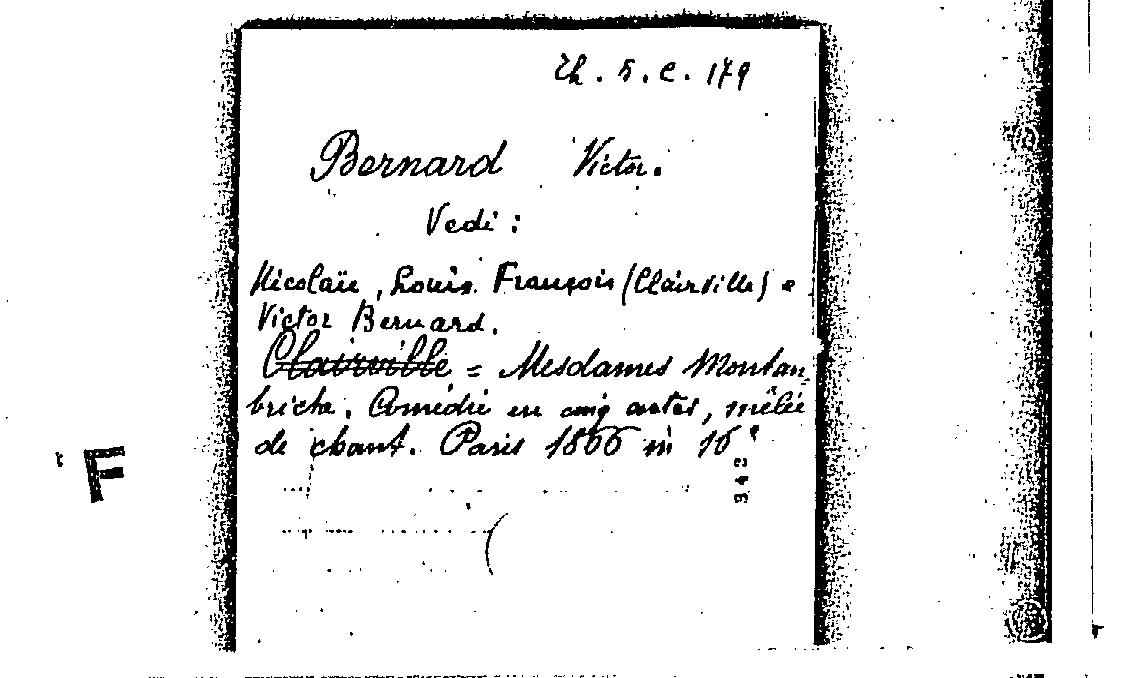 Th. 5. C. 179
Bernard Victor.
Vedi:
Nicolaïe, Louis François (Clairville) e
Victor Bernard.
Clairville = Mesdames Montan-
briche. Comédie en cinq actes, mêlée
de chant. Paris 1866 in 16°
F